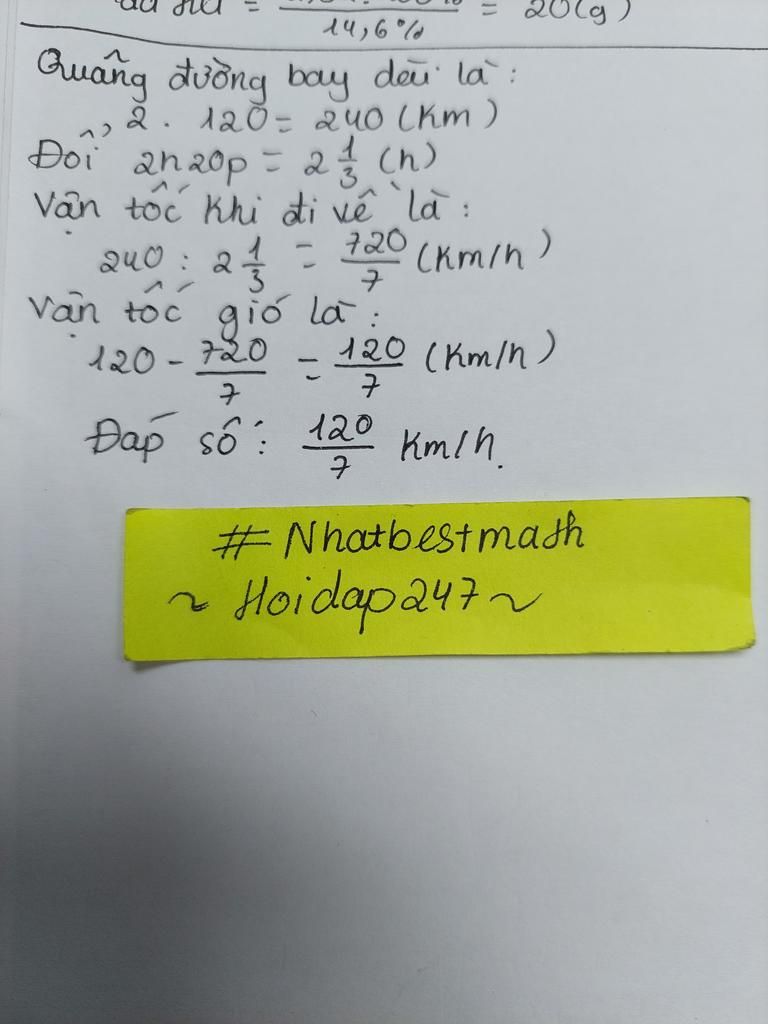 = 20(g)
14,6%
Quãng đường bay dài là:
2 . 120 = 240 (km)
Đổi 2h20p = 2 1/3 (h)
Vận tốc khi đi về là:
240 : 2 1/3 = 720/7 (km/h)
Vận tốc gió là:
120 - 720/7 = 120/7 (km/h)
Đáp số: 120/7 km/h.
#Nhatbestmath
~ Hoidap247 ~